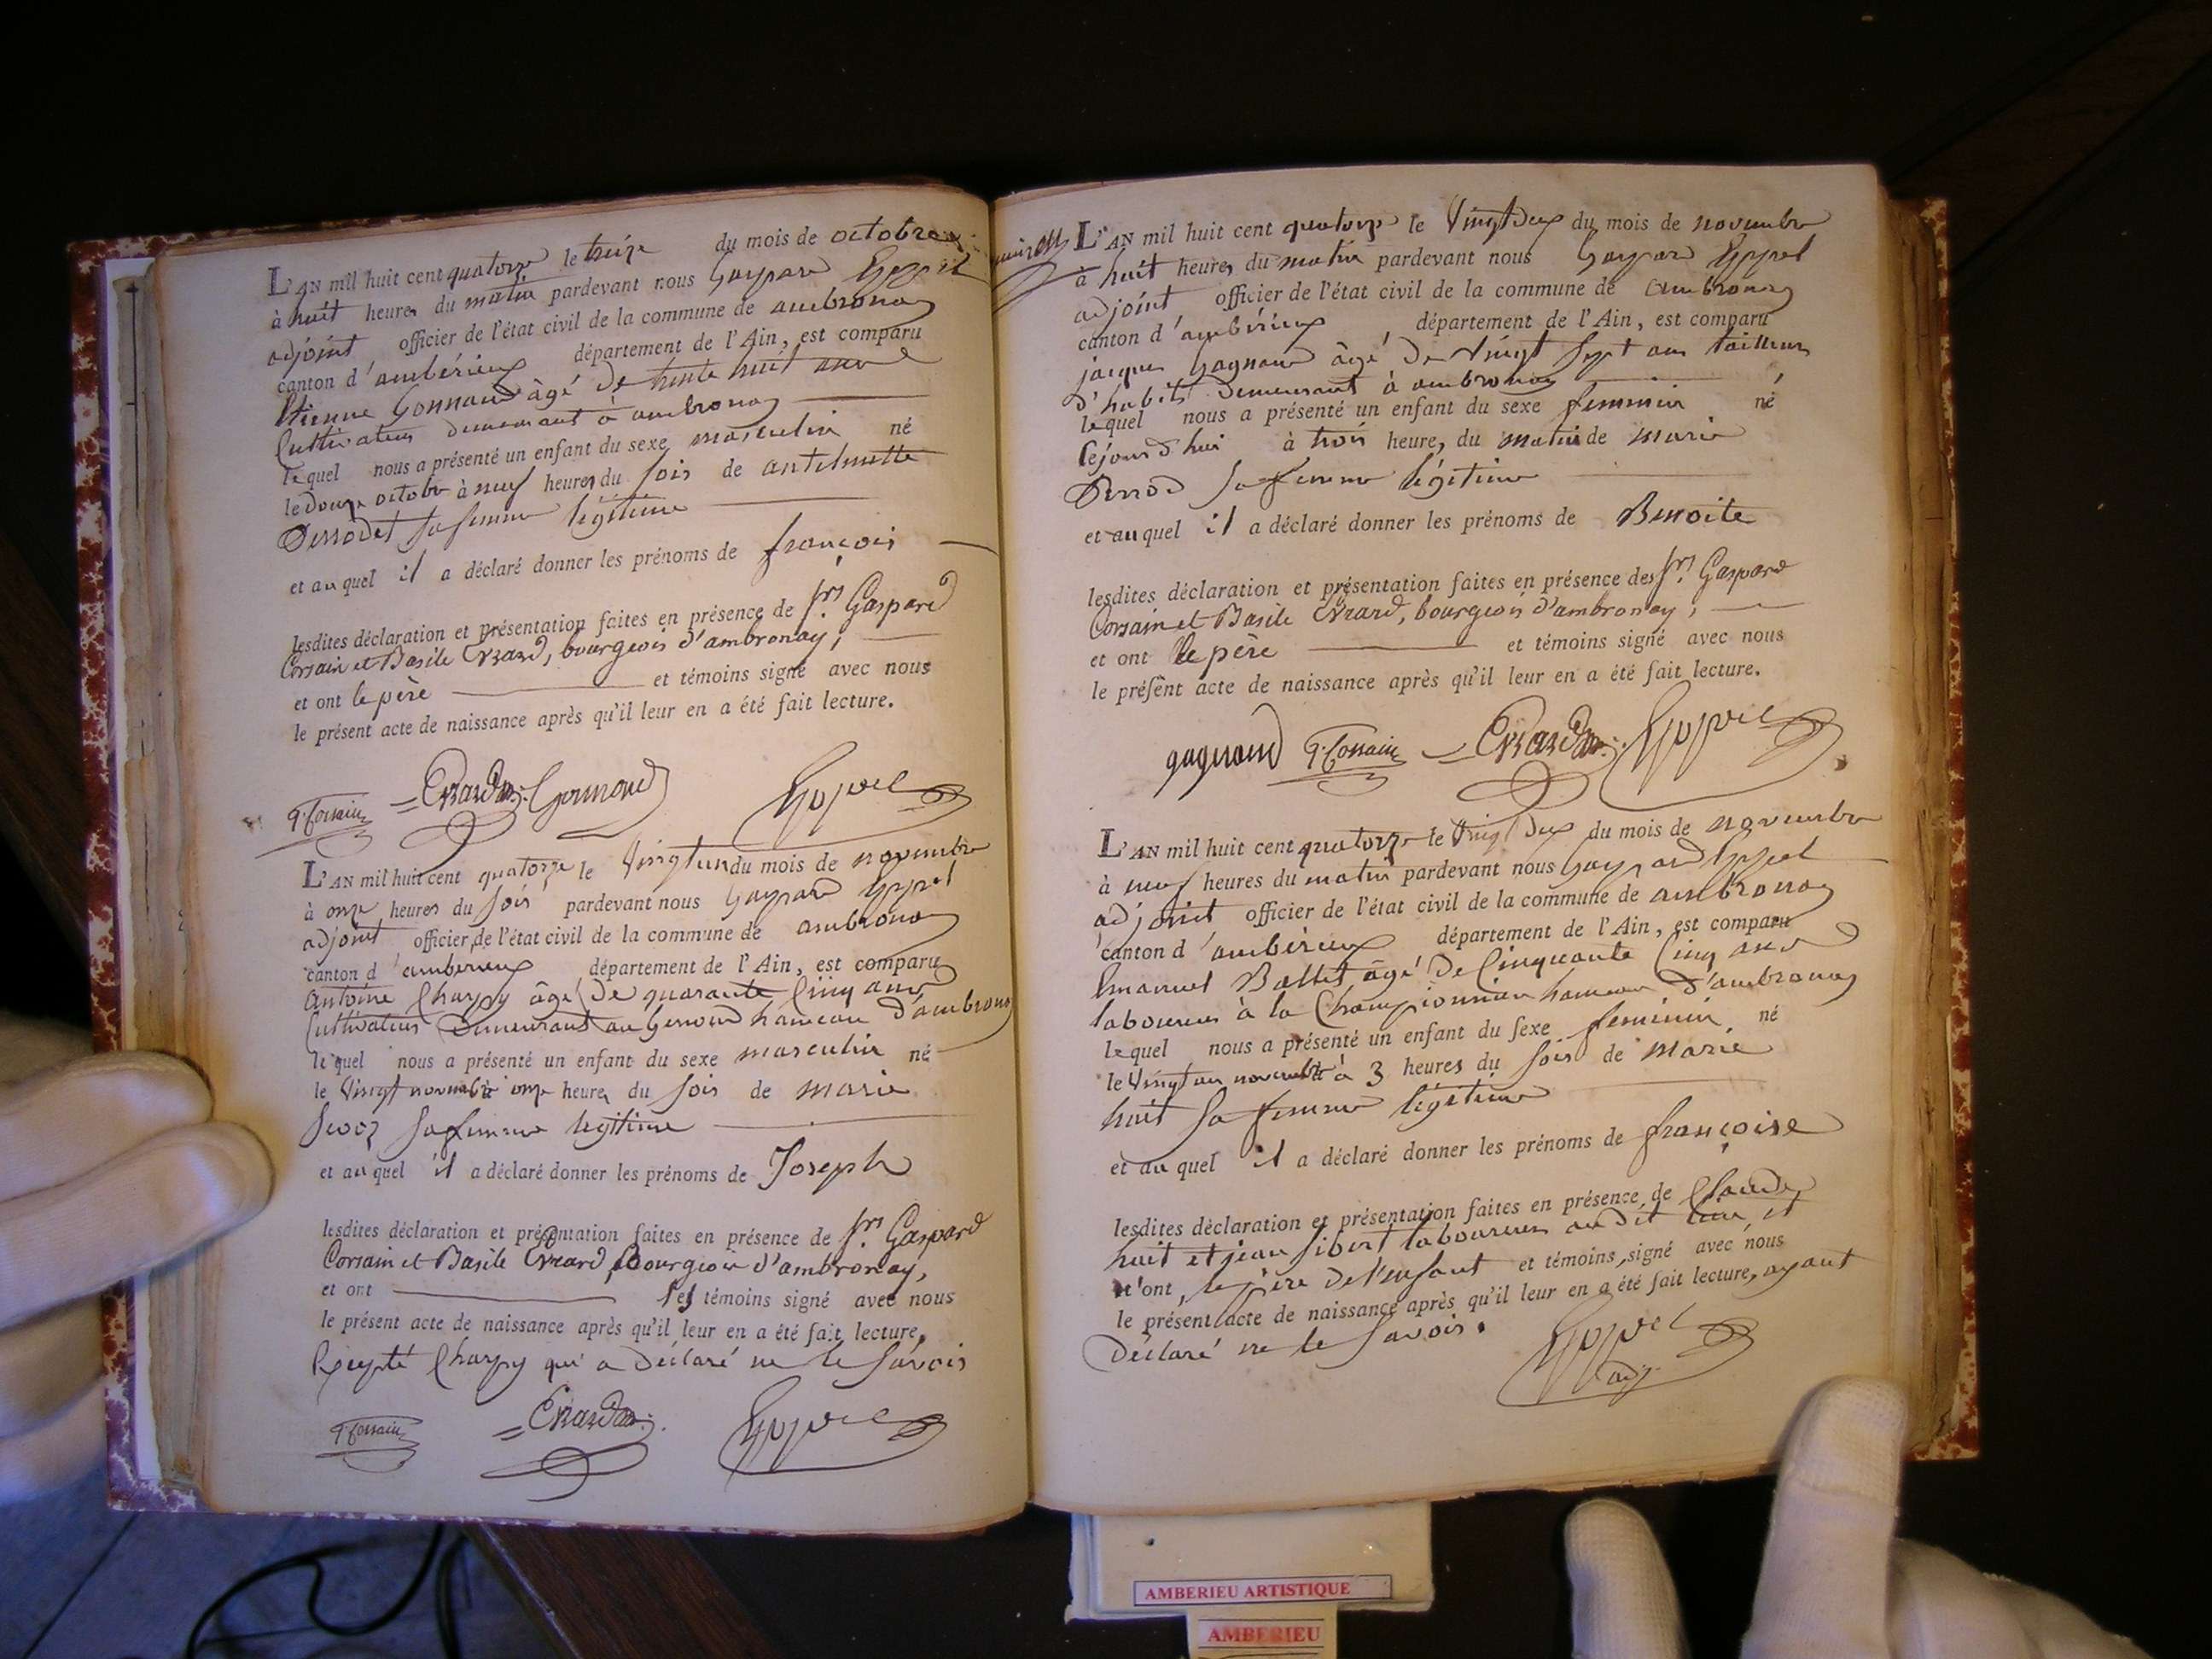 L'AN mil huit cent quatorze le treize du mois de octobre
à huit heures du matin pardevant nous Gaspard Eppel
adjoint officier de l'état civil de la commune de ambronay
canton d'ambérieux département de l'Ain, est comparu
Etienne Gonnand âgé de trente huit ans
Cultivateur demeurant à ambronay
lequel nous a présenté un enfant du sexe masculin né
le Douze octobre à neuf heures du soir de antelmette
Perrodet sa femme légitime
et au quel il a déclaré donner les prénoms de françois
lesdites déclaration et présentation faites en présence de Srs Gaspard
Corsain et Basile Evrard, bourgeois d'ambronay,
et ont le père et témoins signé avec nous
le présent acte de naissance après qu'il leur en a été fait lecture.
G. Corsain Evrard Gonnand Eppel
L'AN mil huit cent quatorze le Vingt un du mois de novembre
à onze heures du soir pardevant nous Gaspard Eppel
adjoint officier de l'état civil de la commune de ambronay
canton d'ambérieux département de l'Ain, est comparu
Antoine Charpy âgé de quarante Cinq ans
Cultivateur Demeurant au Genoud hameau d'ambronay
lequel nous a présenté un enfant du sexe masculin né
le Vingt novembre à onze heures du soir de marie
sa femme légitime
et au quel il a déclaré donner les prénoms de Joseph
lesdites déclaration et présentation faites en présence de Srs Gaspard
Corsain et Basile Evrard, Bourgeois d'ambronay,
et ont les témoins signé avec nous
le présent acte de naissance après qu'il leur en a été fait lecture,
Excepté Charpy qui a déclaré ne le savoir
G. Corsain Evrard Eppel
L'AN mil huit cent quatorze le Vingt deux du mois de novembre
à huit heures du matin pardevant nous Gaspard Eppel
adjoint officier de l'état civil de la commune de ambronay
canton d'ambérieux département de l'Ain, est comparu
jacques Gagnaud âgé de Vingt Sept ans tailleur
d'habits demeurant à ambronay
lequel nous a présenté un enfant du sexe feminin né
Cejourd'hui à trois heures du matin de marie
Perrod sa femme légitime
et au quel il a déclaré donner les prénoms de Benoite
lesdites déclaration et présentation faites en présence des Srs Gaspard
Corsain et Basile Evrard, bourgeois d'ambronay,
et ont le père et témoins signé avec nous
le présent acte de naissance après qu'il leur en a été fait lecture.
gagnaud G. Corsain Evrard Eppel
L'AN mil huit cent quatorze le Vingt deux du mois de novembre
à neuf heures du matin pardevant nous Gaspard Eppel
adjoint officier de l'état civil de la commune de ambronay
canton d'ambérieux département de l'Ain, est comparu
Emanuel Ballet âgé de Cinquante Cinq ans
laboureur à la Championnière hameau d'ambronay
lequel nous a présenté un enfant du sexe feminin né
le Vingt un novembre à 3 heures du soir de marie
huit sa femme légitime
et au quel il a déclaré donner les prénoms de françoise
lesdites déclaration et présentation faites en présence de Claude
huit et jean Sibert laboureurs au dit lieu, et
n'ont, le père de l'enfant et témoins, signé avec nous
le présent acte de naissance après qu'il leur en a été fait lecture, ayant
Déclaré ne le savoir.
Eppel
adj.
AMBERIEU ARTISTIQUE
AMBERIEU